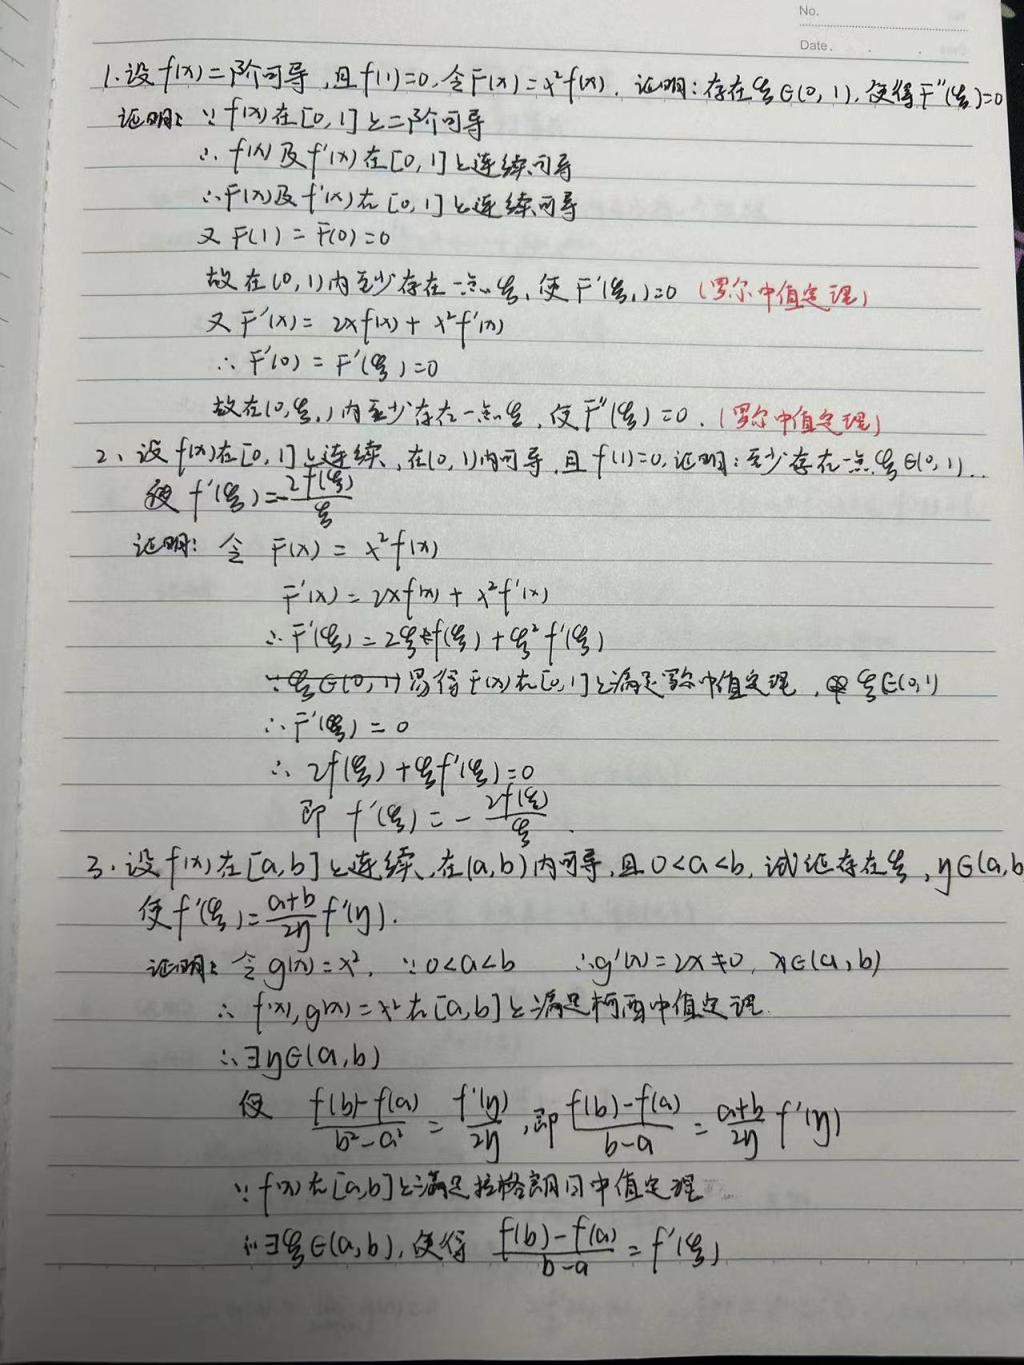 No.
Date.
1.设f(x)二阶可导,且f(1)=0,令F(x)=x²f(x),证明:存在ξ∈(0,1),使得F''(ξ)=0
证明:∵f(x)在[0,1]上二阶可导
∴f(x)及f'(x)在[0,1]上连续可导
∴F(x)及f'(x)在[0,1]上连续可导
又F(1)=F(0)=0
故在(0,1)内至少存在一点ξ₁使F'(ξ₁)=0 (罗尔中值定理)
又F'(x)=2xf(x)+x²f'(x)
∴F'(0)=F'(ξ₁)=0
故在(0,ξ₁)内至少存在一点ξ,使F''(ξ)=0.(罗尔中值定理)
2、设f(x)在[0,1]上连续,在(0,1)内可导,且f(1)=0,证明:至少存在一点ξ∈(0,1)..
使f'(ξ)=-2f(ξ)/ξ
证明:令 F(x)=x²f(x)
F'(x)=2xf(x)+x²f'(x)
∴F'(ξ)=2ξf(ξ)+ξ²f'(ξ)
∵ξ∈(0,1)易得F(x)在[0,1]上满足罗尔中值定理,ξ∈(0,1)
∴F'(ξ)=0
∴2f(ξ)+ξf'(ξ)=0
即 f'(ξ)=-2f(ξ)/ξ.
3.设f(x)在[a,b]上连续,在(a,b)内可导,且0<a<b,试证存在ξ,η∈(a,b
使f'(ξ)=(a+b)/2η f'(η).
证明:令g(x)=x²,∵0<a<b ∴g'(x)=2x≠0,x∈(a,b)
∴f(x),g(x)=x²在[a,b]上满足柯西中值定理.
∴∃η∈(a,b)
使 (f(b)-f(a))/(b²-a²)=f'(η)/2η,即(f(b)-f(a))/(b-a)=(a+b)/2η f'(η)
∵f(x)在[a,b]上满足拉格朗日中值定理
∴∃ξ∈(a,b),使得 (f(b)-f(a))/(b-a)=f'(ξ)